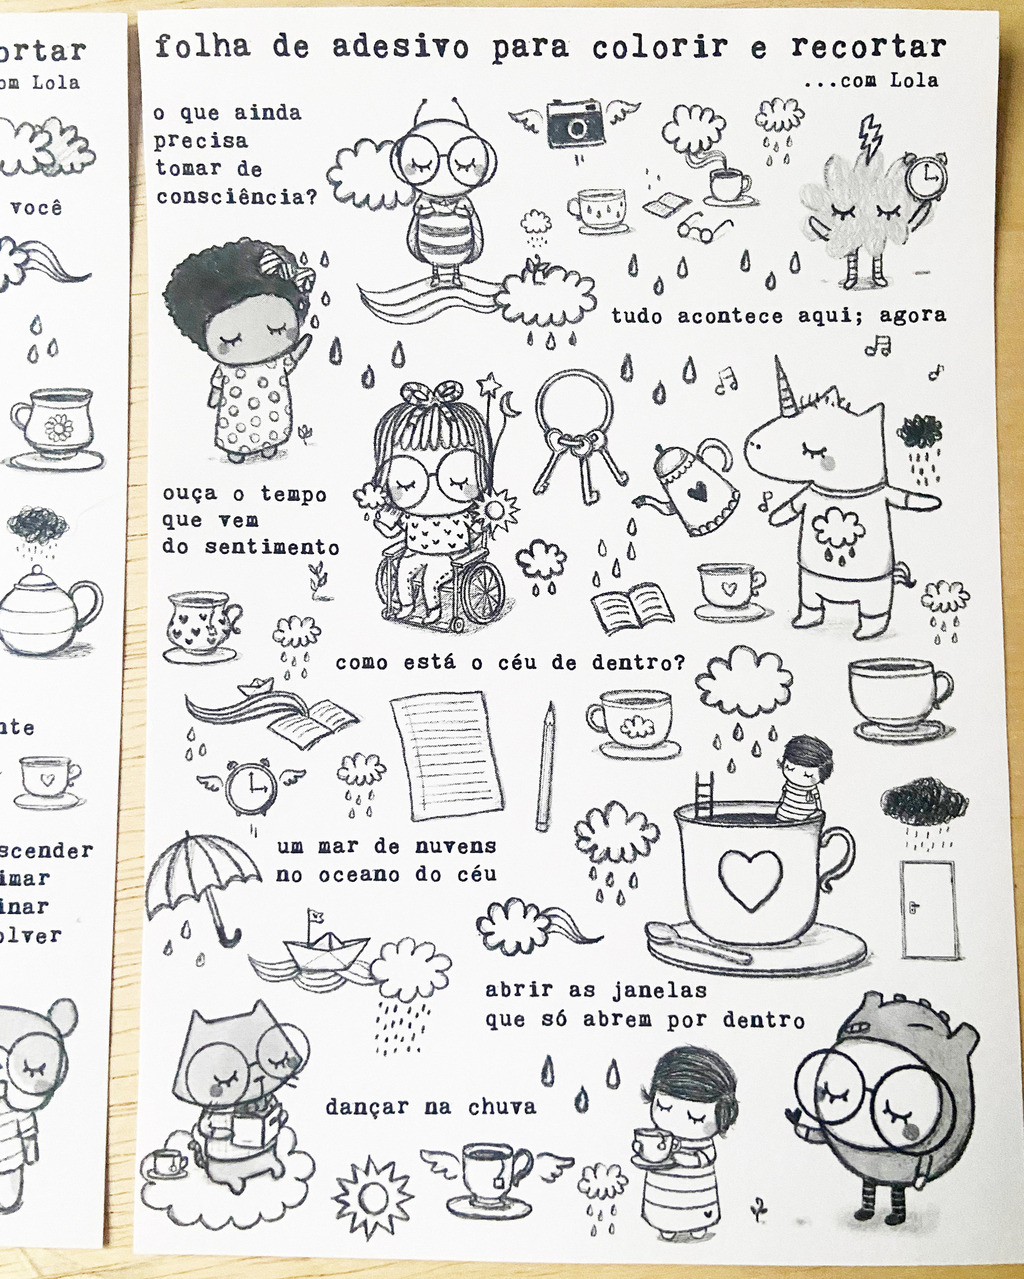 folha de adesivo para colorir e recortar
...com Lola
o que ainda
precisa
tomar de
consciência?
tudo acontece aqui; agora
ouça o tempo
que vem
do sentimento
como está o céu de dentro?
um mar de nuvens
no oceano do céu
abrir as janelas
que só abrem por dentro
dançar na chuva
ortar
om Lola
você
nte
scender
imar
inar
olver